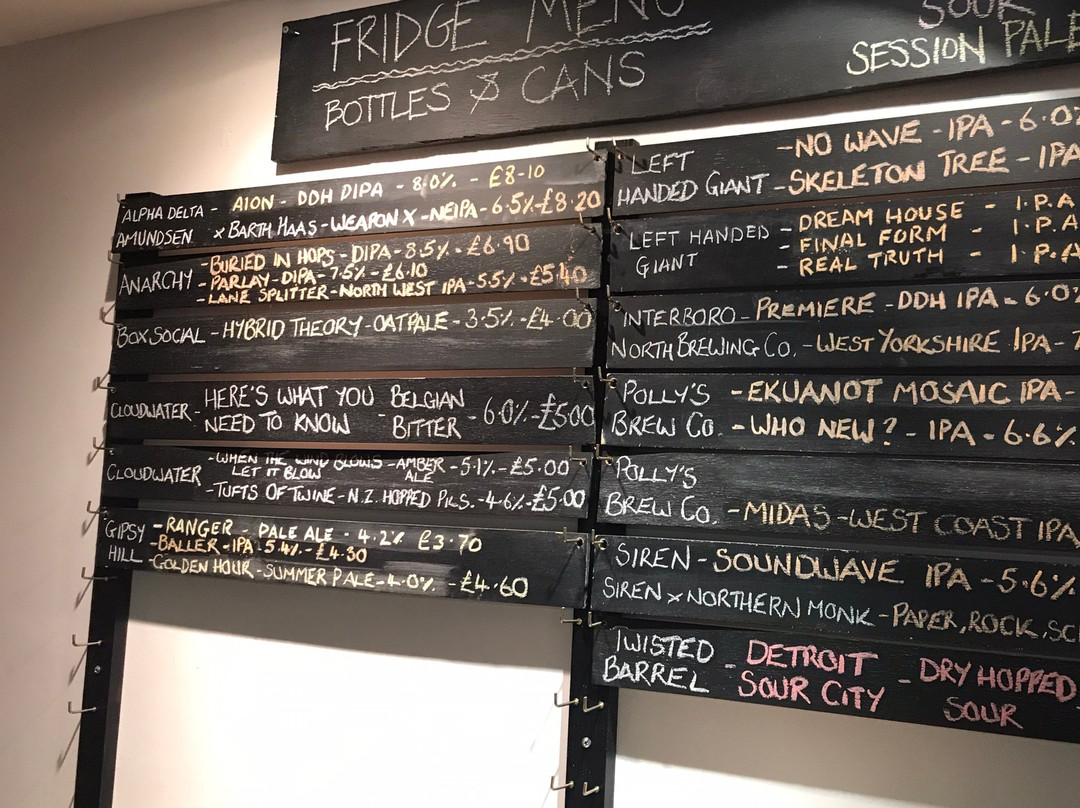 FRIDGE MENU
BOTTLES & CANS
SOUR
SESSION PALE
ALPHA DELTA - AION - DDH DIPA - 8.0% - £8-10
AMUNDSEN x BARTH HAAS - WEAPON X - NEIPA - 6.5% - £8.20
ANARCHY - BURIED IN HOPS - DIPA - 8.5% - £6.90
- PARLAY - DIPA - 7.5% - £6.10
- LANE SPLITTER - NORTH WEST IPA - 5.5% - £5.40
BOX SOCIAL - HYBRID THEORY - OATPALE - 3.5% - £4.00
CLOUDWATER - HERE'S WHAT YOU NEED TO KNOW - BELGIAN BITTER - 6.0% - £5.00
CLOUDWATER - WHEN THE WIND BLOWS LET IT BLOW - AMBER ALE - 5.1% - £5.00
- TUFTS OF TWINE - N.Z. HOPPED PILS. - 4.6% - £5.00
GIPSY HILL - RANGER - PALE ALE - 4.2% £3.70
- BALLER - IPA - 5.4% - £4.30
- GOLDEN HOUR - SUMMER PALE - 4.0% - £4.60
LEFT HANDED GIANT - NO WAVE - IPA - 6.0%
- SKELETON TREE - IPA
LEFT HANDED GIANT - DREAM HOUSE - I.P.A
- FINAL FORM - I.P.A
- REAL TRUTH - I.P.A
INTERBORO - PREMIERE - DDH IPA - 6.0%
NORTH BREWING CO. - WEST YORKSHIRE IPA - 7
POLLY'S BREW CO. - EKUANOT MOSAIC IPA -
- WHO NEW? - IPA - 6.6%
POLLY'S
BREW CO. - MIDAS - WEST COAST IPA
SIREN - SOUNDWAVE IPA - 5.6%
SIREN x NORTHERN MONK - PAPER, ROCK, SC
TWISTED BARREL - DETROIT SOUR CITY - DRY HOPPED SOUR